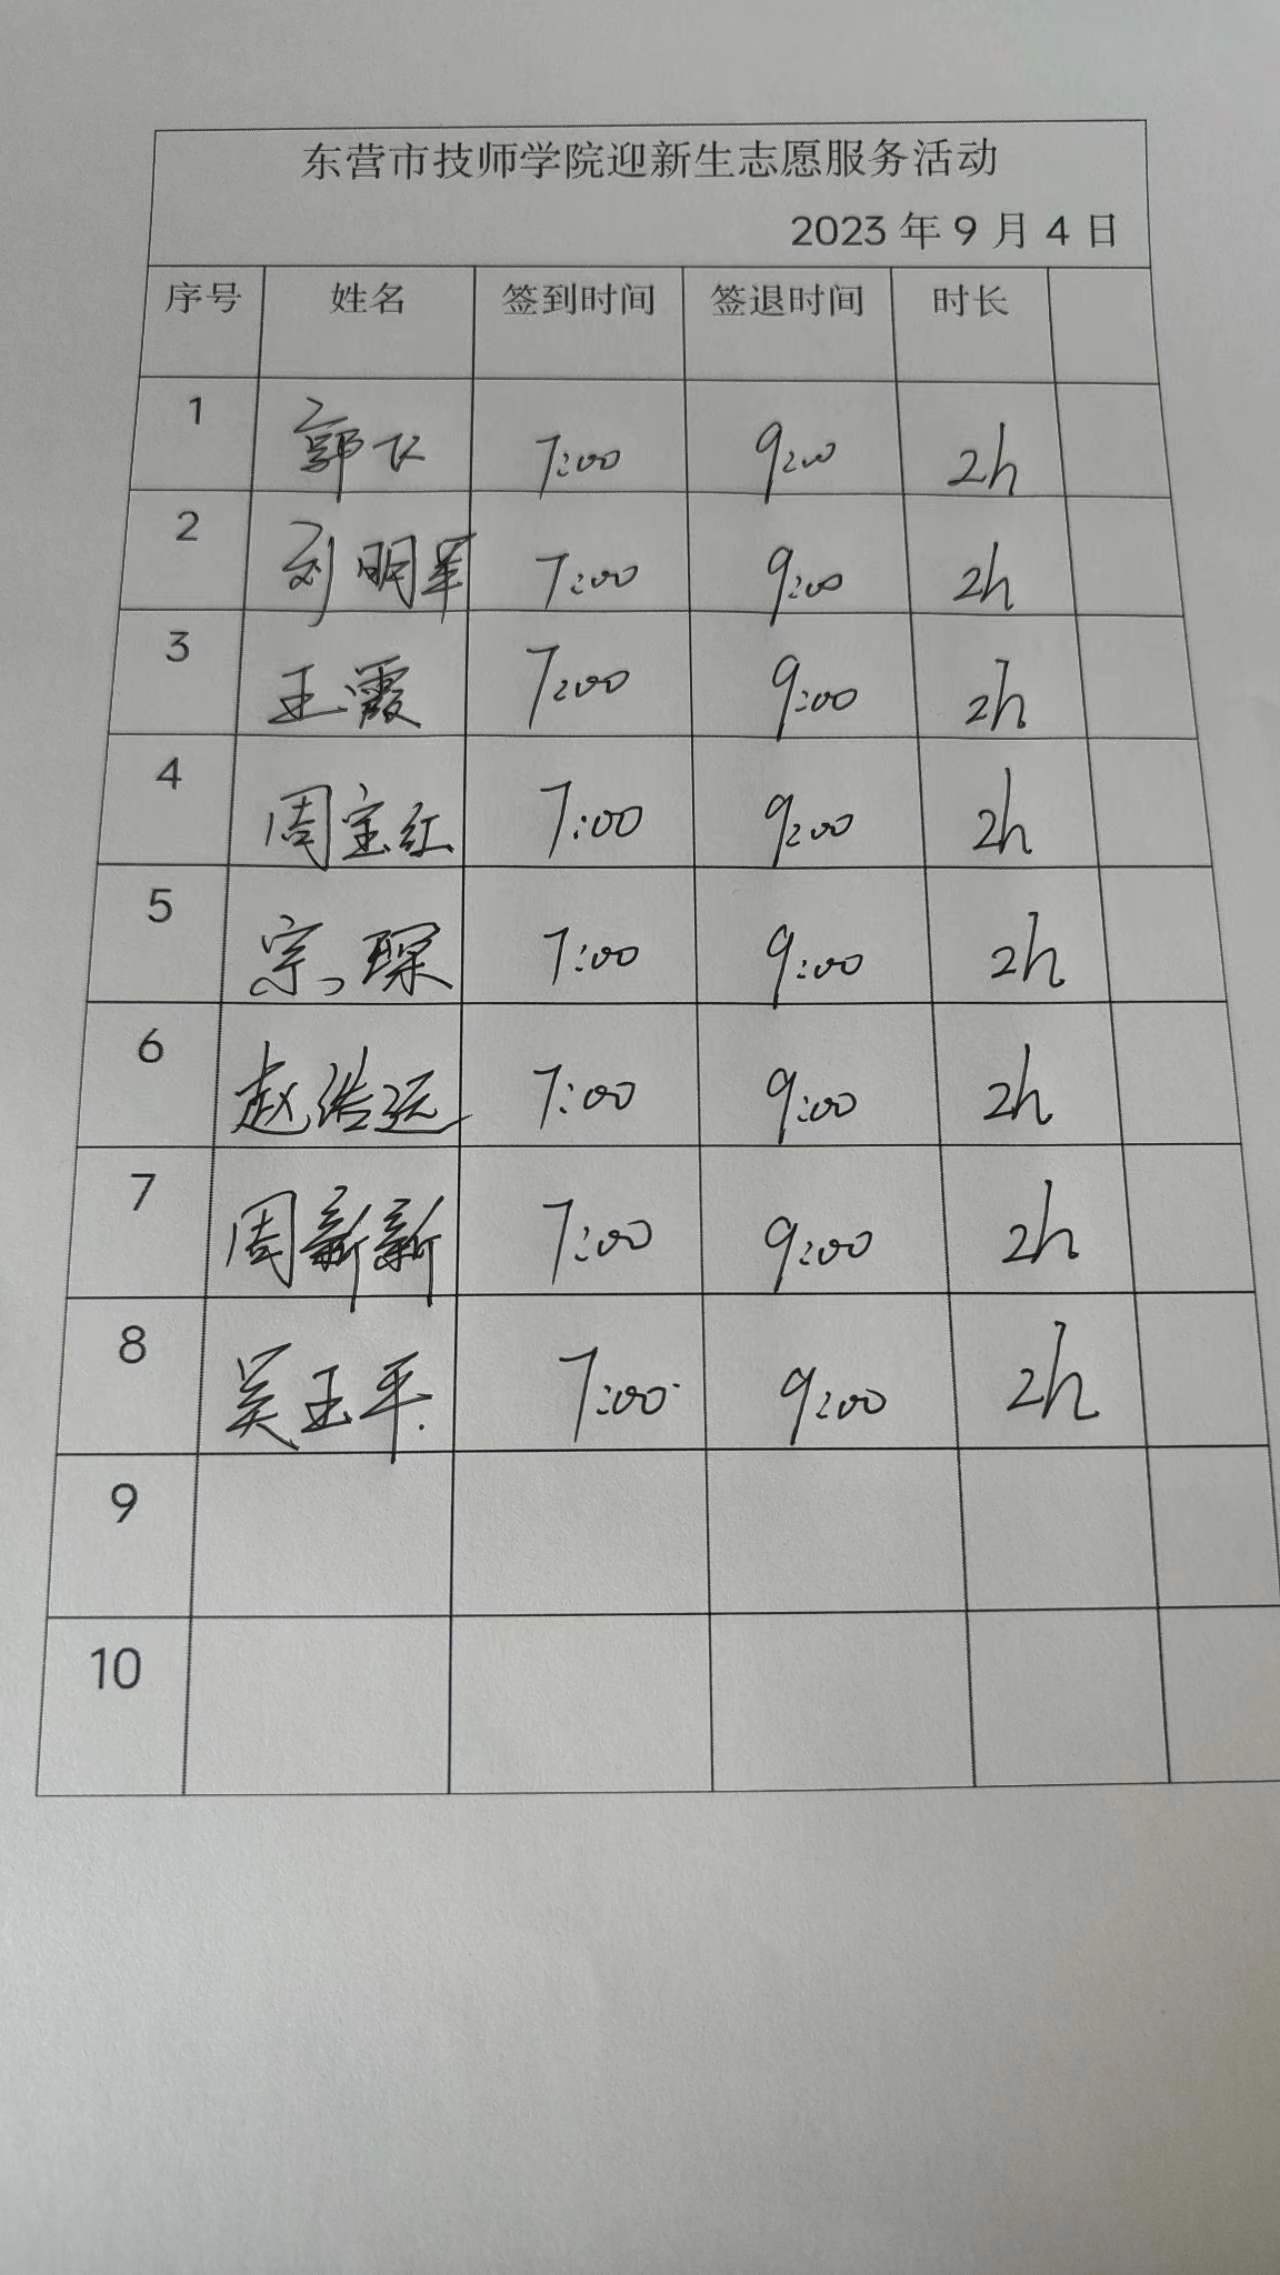 东营市技师学院迎新生志愿服务活动
2023 年 9 月 4 日
序号 姓名 签到时间 签退时间 时长
1 郭飞 7:00 9:00 2h
2 刘明军 7:00 9:00 2h
3 王霞 7:00 9:00 2h
4 周宝红 7:00 9:00 2h
5 宗琛 7:00 9:00 2h
6 赵浩远 7:00 9:00 2h
7 周新新 7:00 9:00 2h
8 吴玉平 7:00 9:00 2h
9
10